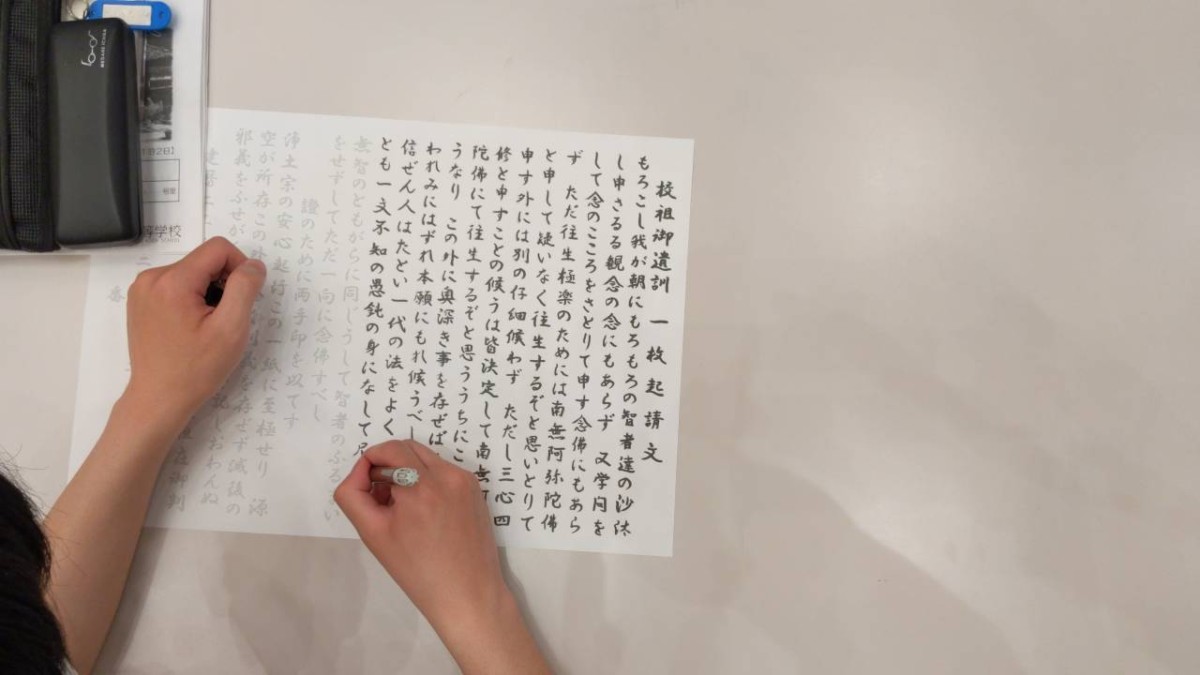 校祖御遺訓 一枚起請文
もろこし我が朝にもろもろの智者達の沙汰
し申さるる観念の念にもあらず 又学问を
して念のこころをさとりて申す念佛にもあら
ず ただ往生極楽のためには南無阿弥陀佛
と申して疑いなく往生するぞと思いとりて
申す外には別の仔細候わず ただし三心四
修と申すことの候うは皆決定して南無阿
陀佛にて往生するぞと思ううちにこ
うなり この外に奥深き事を存ぜば
われみにはずれ本願にもれ候うべし
信ぜん人はたとい一代の法をよく
とも一文不知の愚鈍の身になして尼
無智のともがらに同じうして智者のふるまい
をせずしてただ一向に念佛すべし
證のために両手印を以てす
浄土宗の安心起行この一紙に至極せり 源
空が所存この外 を存ぜず滅後の
邪義をふせが 記しおわんぬ
建暦二 在御判
二番
等学校